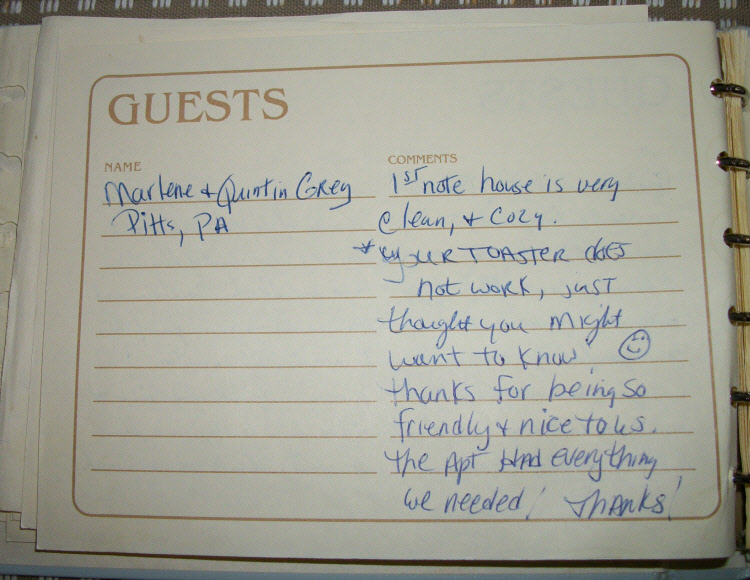 GUESTS
NAME
Marlene + Quintin Grey
Pitts, PA
COMMENTS
1st note house is very
clean, + cozy.
* your TOASTER does
not work, just
thought you might
want to know!
thanks for being so
friendly + nice to us.
the Apt had everything
we needed! Thanks!